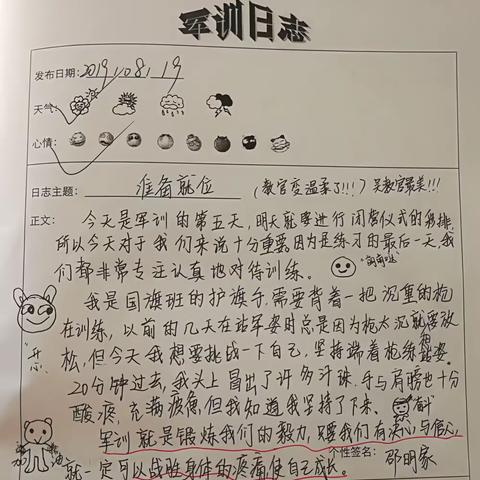 军训日志
发布日期: 2019.08.19
天气:
心情:
日志主题: 准备就位 (教官变温柔了!!!) 吴教官最美!!!
正文: 今天是军训的第五天,明天就要进行闭营仪式的彩排,
所以今天对于我们来说十分重要。因为是练习的最后一天,我
们都非常专注认真地对待训练。
我是国旗班的护旗手,需要背着一把沉重的枪
在训练,以前的几天在站军姿时总是因为枪太沉就要放
松,但今天我想要挑战一下自己,坚持端着枪练站姿。
"开心"
20分钟过去,我头上冒出了许多汗珠,手与肩膀也十分
酸疼,充满疲惫,但我知道我坚持了下来。
奋斗
军训就是锻炼我们的毅力,只要我们有决心与信心,
就一定可以战胜身体的疼痛使自己成长。
加油
个性签名: 邵明家